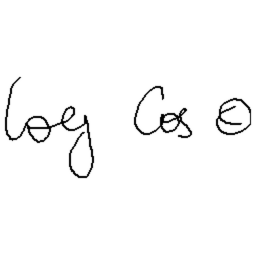 log cos Θ